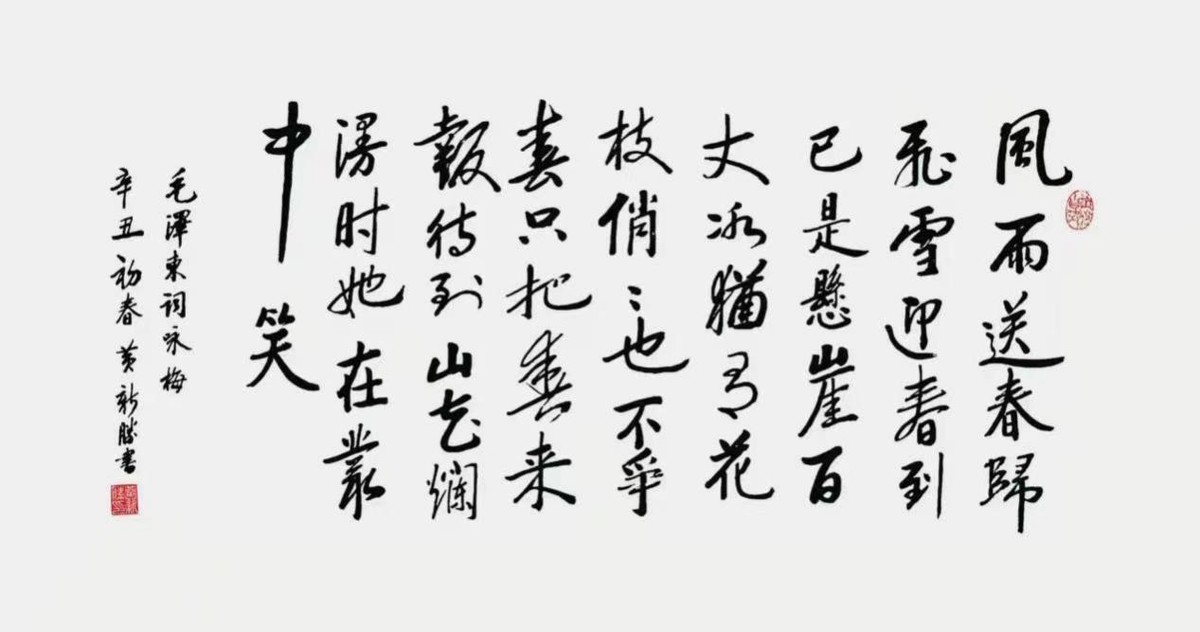 風雨送春歸
飛雪迎春到
已是懸崖百
丈冰猶有花
枝俏〻也不爭
春只把春来
報待到山花爛
漫时她在叢
中笑
毛澤東词咏梅
辛丑初春黄新勝書